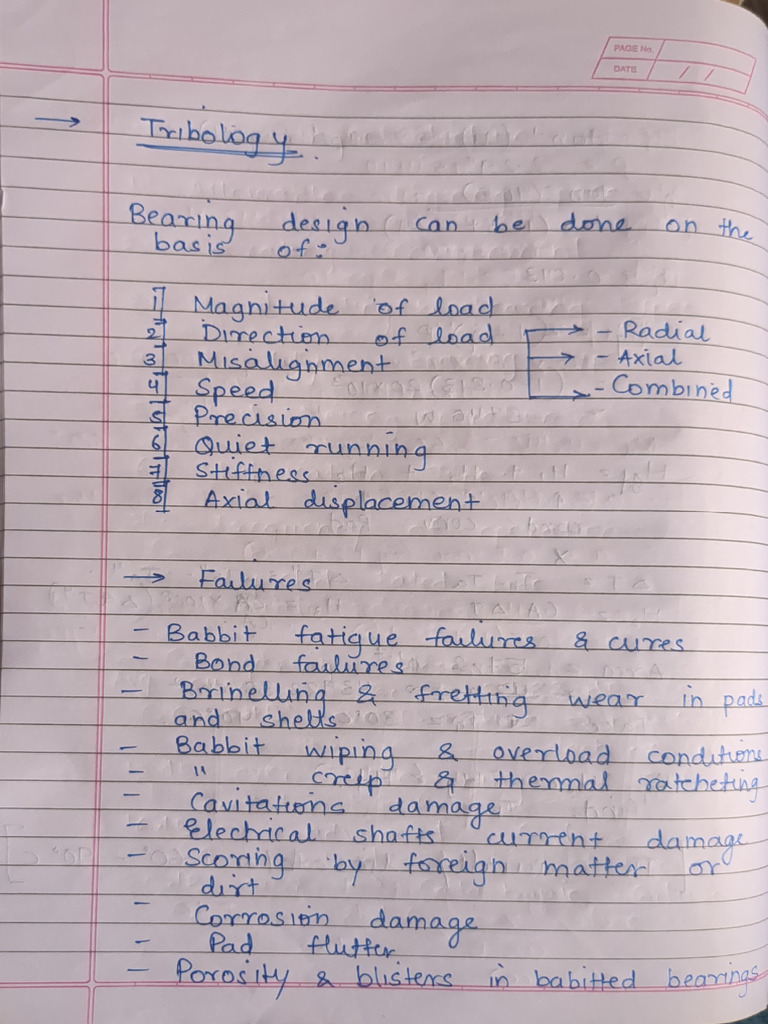 PAGE No.
DATE / /
→ Tribology.
Bearing design can be done on the
basis of:
1] Magnitude of load
2] Direction of load → - Radial
3] Misalignment → - Axial
4] Speed → - Combined
5] Precision
6] Quiet running
7] Stiffness
8] Axial displacement
→ Failures
- Babbit fatigue failures & cures
- Bond failures
- Brinelling & fretting wear in pads
and shells
- Babbit wiping & overload conditions
- " creep & thermal ratcheting
- Cavitations damage
- Electrical shafts current damage
- Scoring by foreign matter or
dirt
- Corrosion damage
- Pad flutter
- Porosity & blisters in babitted bearings